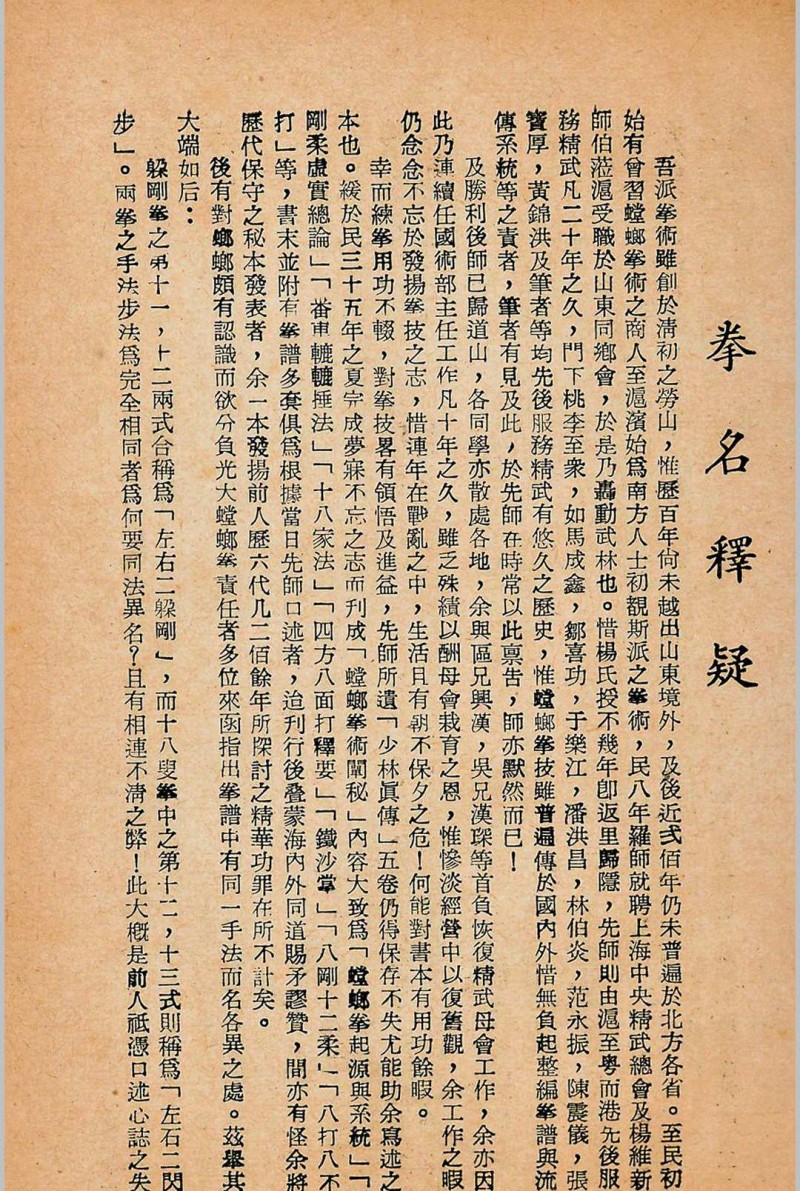 拳名釋疑
吾派拳術雖創於淸初之勞山，惟歷百年尙未越出山東境外，及後近弍佰年仍未普遍於北方各省。至民初
始有曾習螳螂拳術之商人至滬濱始爲南方人士初覩斯派之拳術，民八年羅師就聘上海中央精武總會及楊維新
師伯蒞滬受職於山東同鄕會，於是乃轟動武林也。惜楊氏授不幾年卽返里歸隱，先師則由滬至粤而港先後服
務精武凡二十年之久，門下桃李至衆，如馬成鑫，鄒喜功，于樂江，潘洪昌，林伯炎，范永振，陳震儀，張
寶厚，黃錦洪及筆者等均先後服務精武有悠久之歷史，惟螳螂拳技雖普遍傳於國內外惜無負起整編拳譜與流
傳系統等之責者，筆者有見及此，於先師在時常以此禀告，師亦默然而已！
及勝利後師已歸道山，各同學亦散處各地，余與區兄興漢，吳兄漢琛等首負恢復精武母會工作，余亦因
此乃連續任國術部主任工作凡十年之久，雖乏殊績以酬母會栽育之恩，惟慘淡經營中以復舊觀，余工作之暇
仍念念不忘於發揚拳技之志，惜連年在戰亂之中，生活且有朝不保夕之危！何能對書本有用功餘暇。
幸而練拳用功不輟，對拳技畧有領悟及進益，先師所遺「少林眞傳」五卷仍得保存不失尤能助余寫述之
本也。緩於民三十五年之夏完成夢寐不忘之志而刋成「螳螂拳術闡秘」內容大致爲「螳螂拳起源與系統」「
剛柔虛實總論」「番車轆轆捶法」「十八家法」「四方八面打釋要」「鐵沙掌」「八剛十二柔」「八打八不
打」等，書末並附有拳譜多套俱爲根據當日先師口述者，迨刋行後叠蒙海內外同道賜矛謬贊，間亦有怪余將
歷代保守之秘本發表者，余一本發揚前人歷六代几二佰餘年所探討之精華功罪在所不計矣。
後有對螂螂頗有認識而欲分負光大螳螂拳責任者多位來函指出拳譜中有同一手法而名各異之處。茲舉其
大端如后：
躲剛拳之第十一，十二兩式合稱爲「左右二躲剛」，而十八叟拳中之第十二，十三式則稱爲「左右二閃
步」。兩拳之手法步法爲完全相同者爲何要同法異名？且有相連不淸之弊！此大槪是前人祗憑口述心誌之失